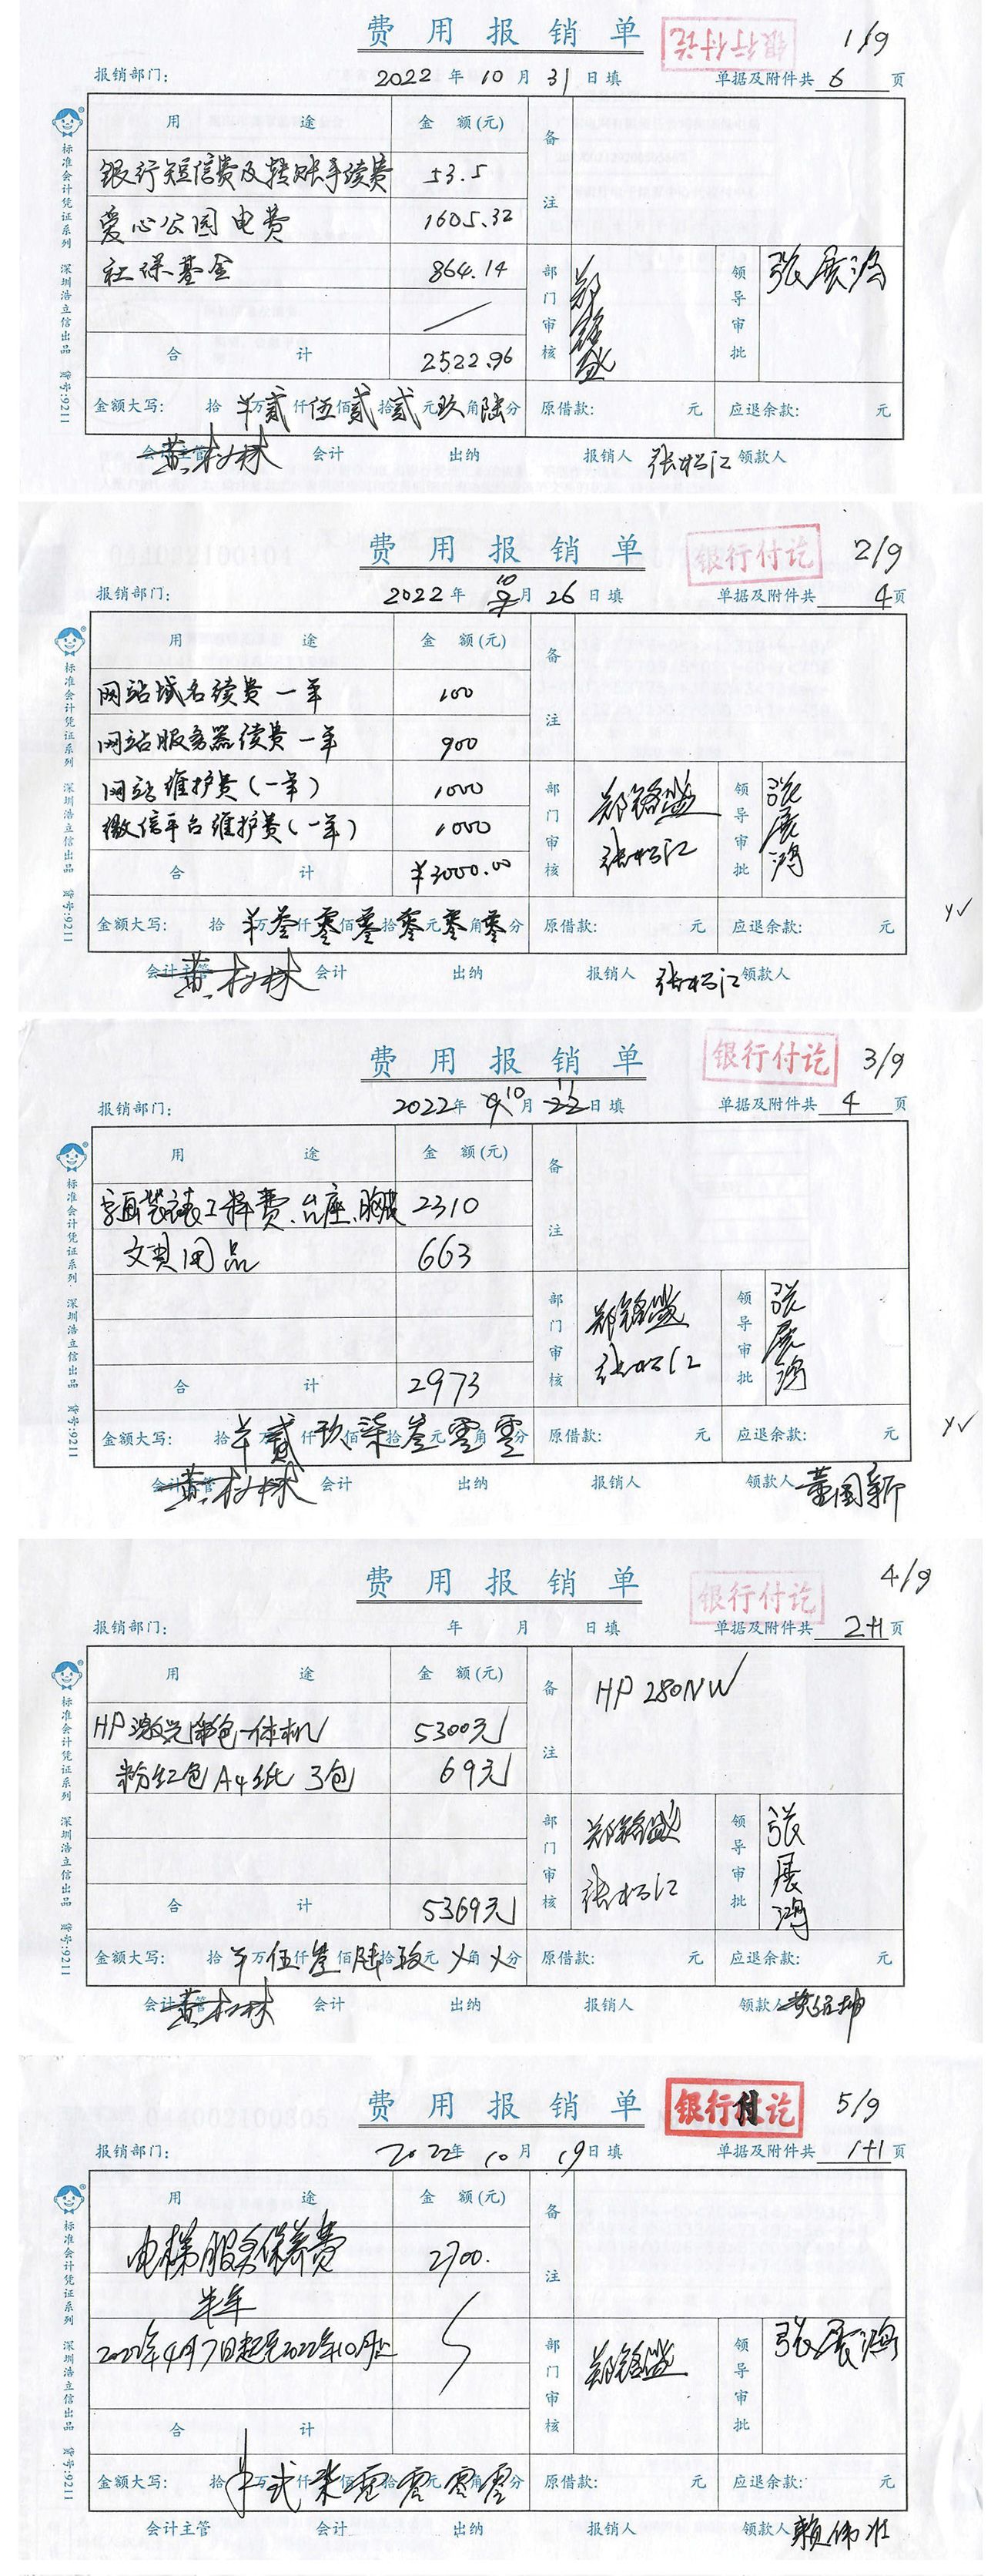 费 用 报 销 单 银行付讫 1/9
报销部门: 2022 年 10 月 31 日填 单据及附件共 6 页
用 途 金 额(元) 备注
银行短信费及转账手续费 53.5
爱心公园电费 1605.32
社保基金 864.14
部门审核 郑铭盛 领导审批 张展鸿
合 计 2522.96
金额大写: 拾 ¥万贰仟伍佰贰拾贰元玖角陆分 原借款: 元 应退余款: 元
会计主管 黄松林 会计 出纳 报销人 张松江 领款人
标准会计凭证系列 深圳浩立信出品 货号:9211
费 用 报 销 单 银行付讫 2/9
报销部门: 2022 年 10 月 26 日填 单据及附件共 4 页
用 途 金 额(元) 备注
网站域名续费一年 100
网站服务器续费一年 900
网站维护费(一年) 1000
微信平台维护费(一年) 1000
部门审核 郑铭盛 张松江 领导审批 张展鸿
合 计 ¥3000.00
金额大写: 拾 ¥万叁仟零佰零拾零元零角零分 原借款: 元 应退余款: 元
会计主管 黄松林 会计 出纳 报销人 张松江 领款人
标准会计凭证系列 深圳浩立信出品 货号:9211
费 用 报 销 单 银行付讫 3/9
报销部门: 2022 年 10 月 11 日填 单据及附件共 4 页
用 途 金 额(元) 备注
字画装裱工料费、台座、胸牌 2310
文具用品 663
部门审核 郑铭盛 张松江 领导审批 张展鸿
合 计 2973
金额大写: 拾 ¥万贰仟玖佰柒拾叁元零角零分 原借款: 元 应退余款: 元
会计主管 黄松林 会计 出纳 报销人 领款人 董国新
标准会计凭证系列 深圳浩立信出品 货号:9211
费 用 报 销 单 银行付讫 4/9
报销部门: 年 月 日填 单据及附件共 2+1 页
用 途 金 额(元) 备注 HP 280NW
HP激光彩色一体机 5300元
粉红包A4纸 3包 69元
部门审核 郑铭盛 张松江 领导审批 张展鸿
合 计 5369元
金额大写: 拾 ¥万伍仟叁佰陆拾玖元 ×角 ×分 原借款: 元 应退余款: 元
会计主管 黄松林 会计 出纳 报销人 领款人
标准会计凭证系列 深圳浩立信出品 货号:9211
费 用 报 销 单 银行付讫 5/9
报销部门: 2022 年 10 月 19 日填 单据及附件共 1+1 页
用 途 金 额(元) 备注
电梯服务保养费 2700.
半年
2022年4月7日起至2022年10月止
部门审核 郑铭盛 领导审批 张展鸿
合 计
金额大写: 拾 ¥万贰仟柒佰零拾零元零角零分 原借款: 元 应退余款: 元
会计主管 会计 出纳 报销人 领款人 赖伟胜
标准会计凭证系列 深圳浩立信出品 货号:9211